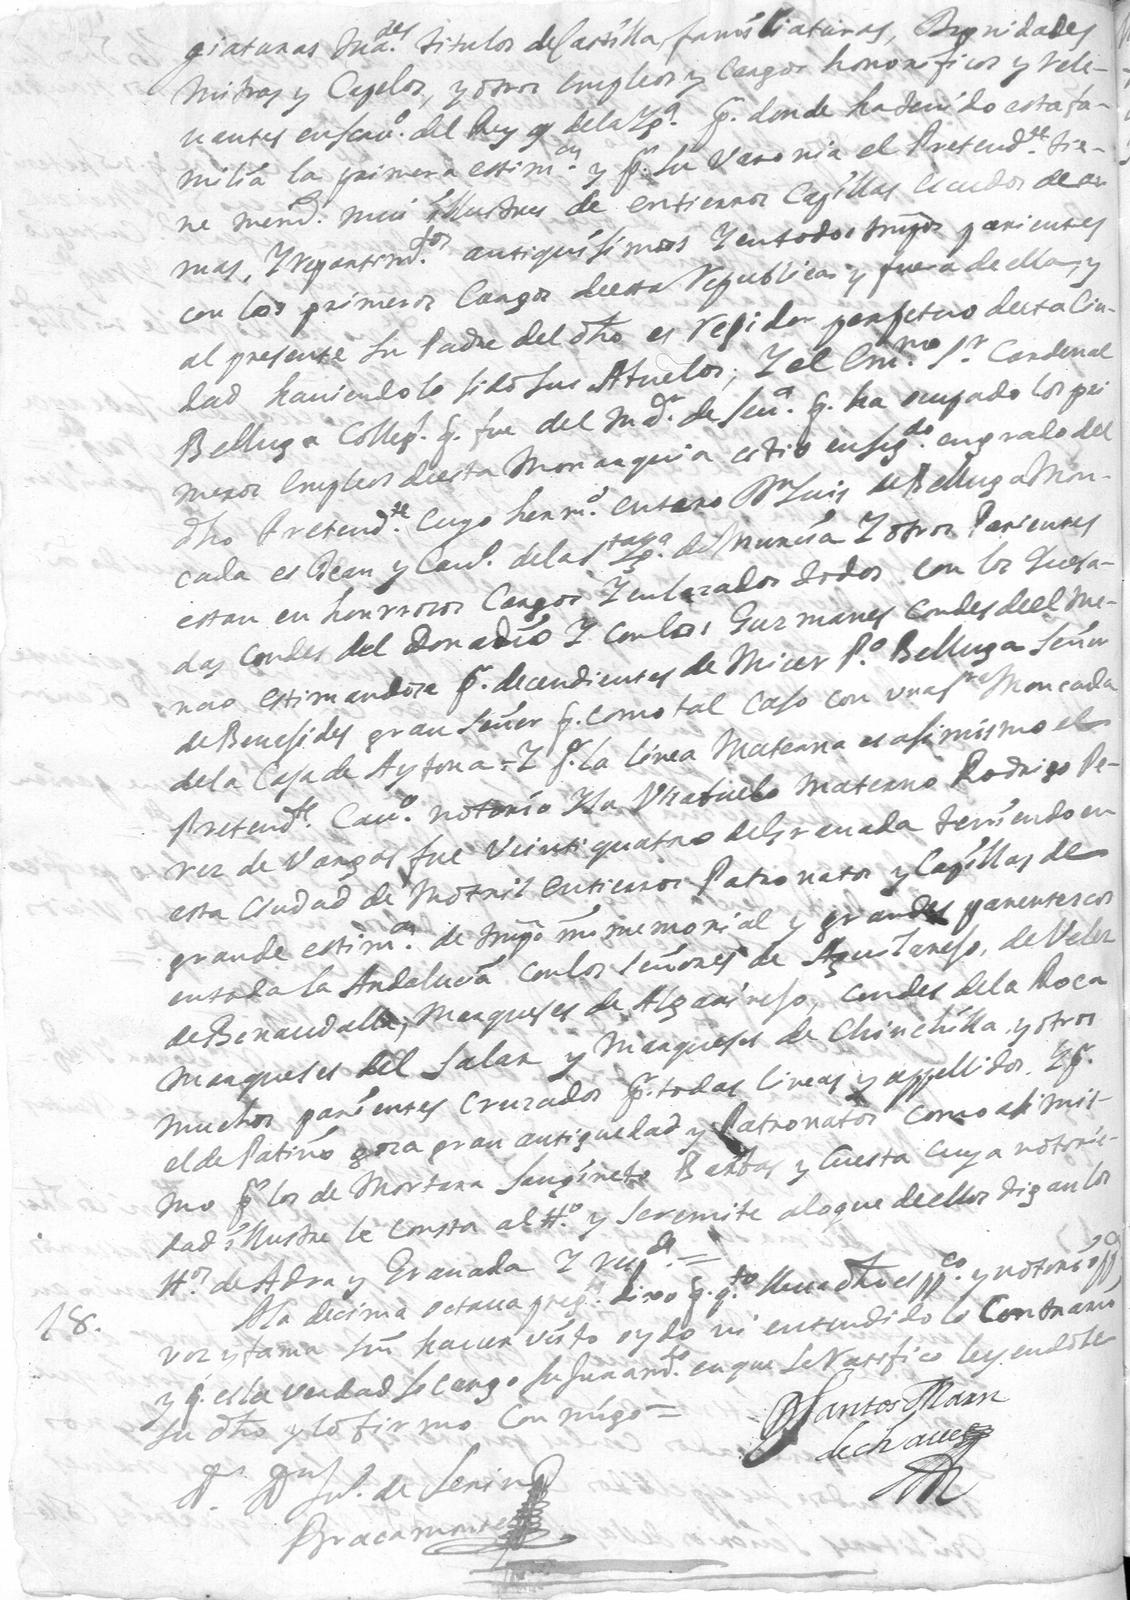 giaturas Jud.des titulos de Castilla, familiaturas, Dignidades
Mitras y Capelos, y otros empleos y Cargos honorificos y rele-
uantes en seru.o del Rey y de la Ig.a p.r donde ha tenido esta fa-
milia la primera estim.on y p.r su Varonia el Pretend.te tie-
ne mui illustres de entierros Capillas Escudos de ar
mas, Y repartim.tos antiquissimos Y en todos tmpos parientes
con los primeros Cargos desta Republica y fuera de ella, y
al presente su Padre del dho es regidor perpetuo desta Ciu-
dad hauiendolo sido sus Abuelos; Y el Em.mo S.r Cardenal
Belluga Colleg.l q. fue del de q. ha ocupado los pri
meros empleos desta Monarquia es tio en seg.do grado del
dho Pretend.te Cuyo herm.o entero Dn Luis de Belluga Mon-
cada es Dean y Can.o de la S.ta Ig.a de Murcia Y otros Parientes
estan en honrrosos Cargos Y enlazados todos con los Quesa-
das Condes del Donadio Y con los Guzmanes Condes del
estimandose p.r decendientes de Micer P.o Belluga Señor
de Benesides gran Señor q. como tal Caso con una S.ra Moncada
de la Casa de Aytona = Y p.r la linea Materna es asimismo el
Pretend.te Cau.o notorio Y su Visabuelo Materno Rodrigo Pe-
rez de Vargas fue Veintiquatro de Granada teniendo en
esta Ciudad de Motril entierros Patronatos y Capillas de
grande estim.on de tmpo inmemorial y grandes parentescos
en toda la Andalucia con los Señores de Agustarejo, de Velez
de Benaudalla, Marqueses de Algarinejo, Condes de la Roca
Marqueses del Salar y Marqueses de Chinchilla y otros
muchos parientes Cruzados p.r todas lineas y appellidos, Y p.r
el de Patiño goza gran antiguedad y Patronatos Como asimis-
mo p.r los de Mortara Sangineto Barbas y Cuesta cuya notorie-
dad illustre le Consta al tt.o y se remite a lo que de ellos digan los
tt.os de Adra y Granada Y resp.de =
18. A la decima octaua preg.ta Dixo q. q.to lleua dho es pp.co y notorio pp.a
voz y fama sin hauer visto oydo ni entendido lo Contrario
y q. es la verdad so cargo su Juram.to en que se Ratifico leyendole
su dho y lo firmo Conmigo =
Santos Marn
de chaues
Dn Ju.o de
Bracamonte